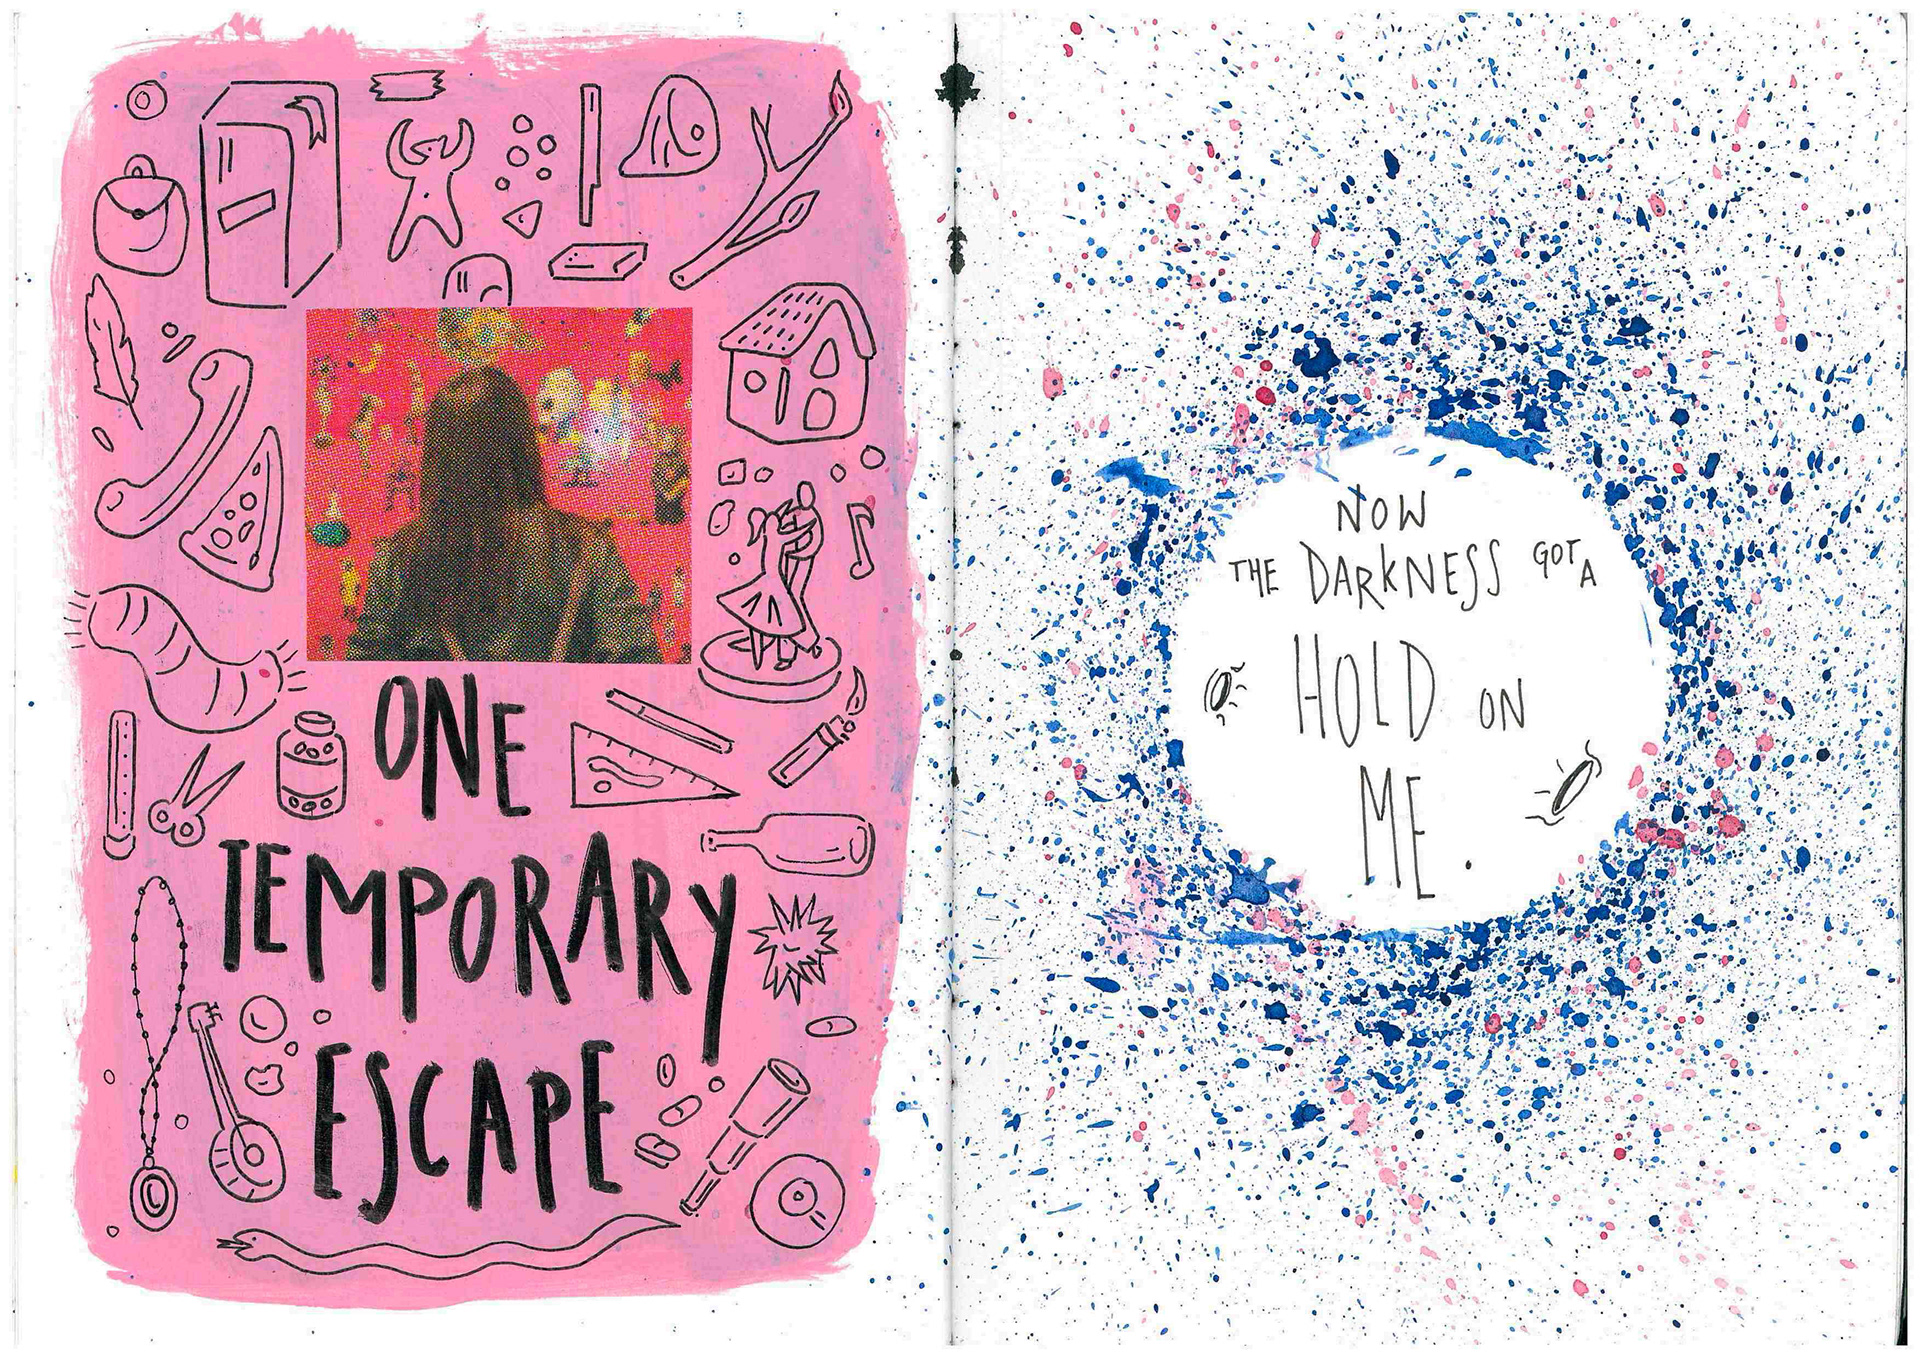 ONE
TEMPORARY
ESCAPE
NOW
THE DARKNESS GOT A
HOLD ON
ME.